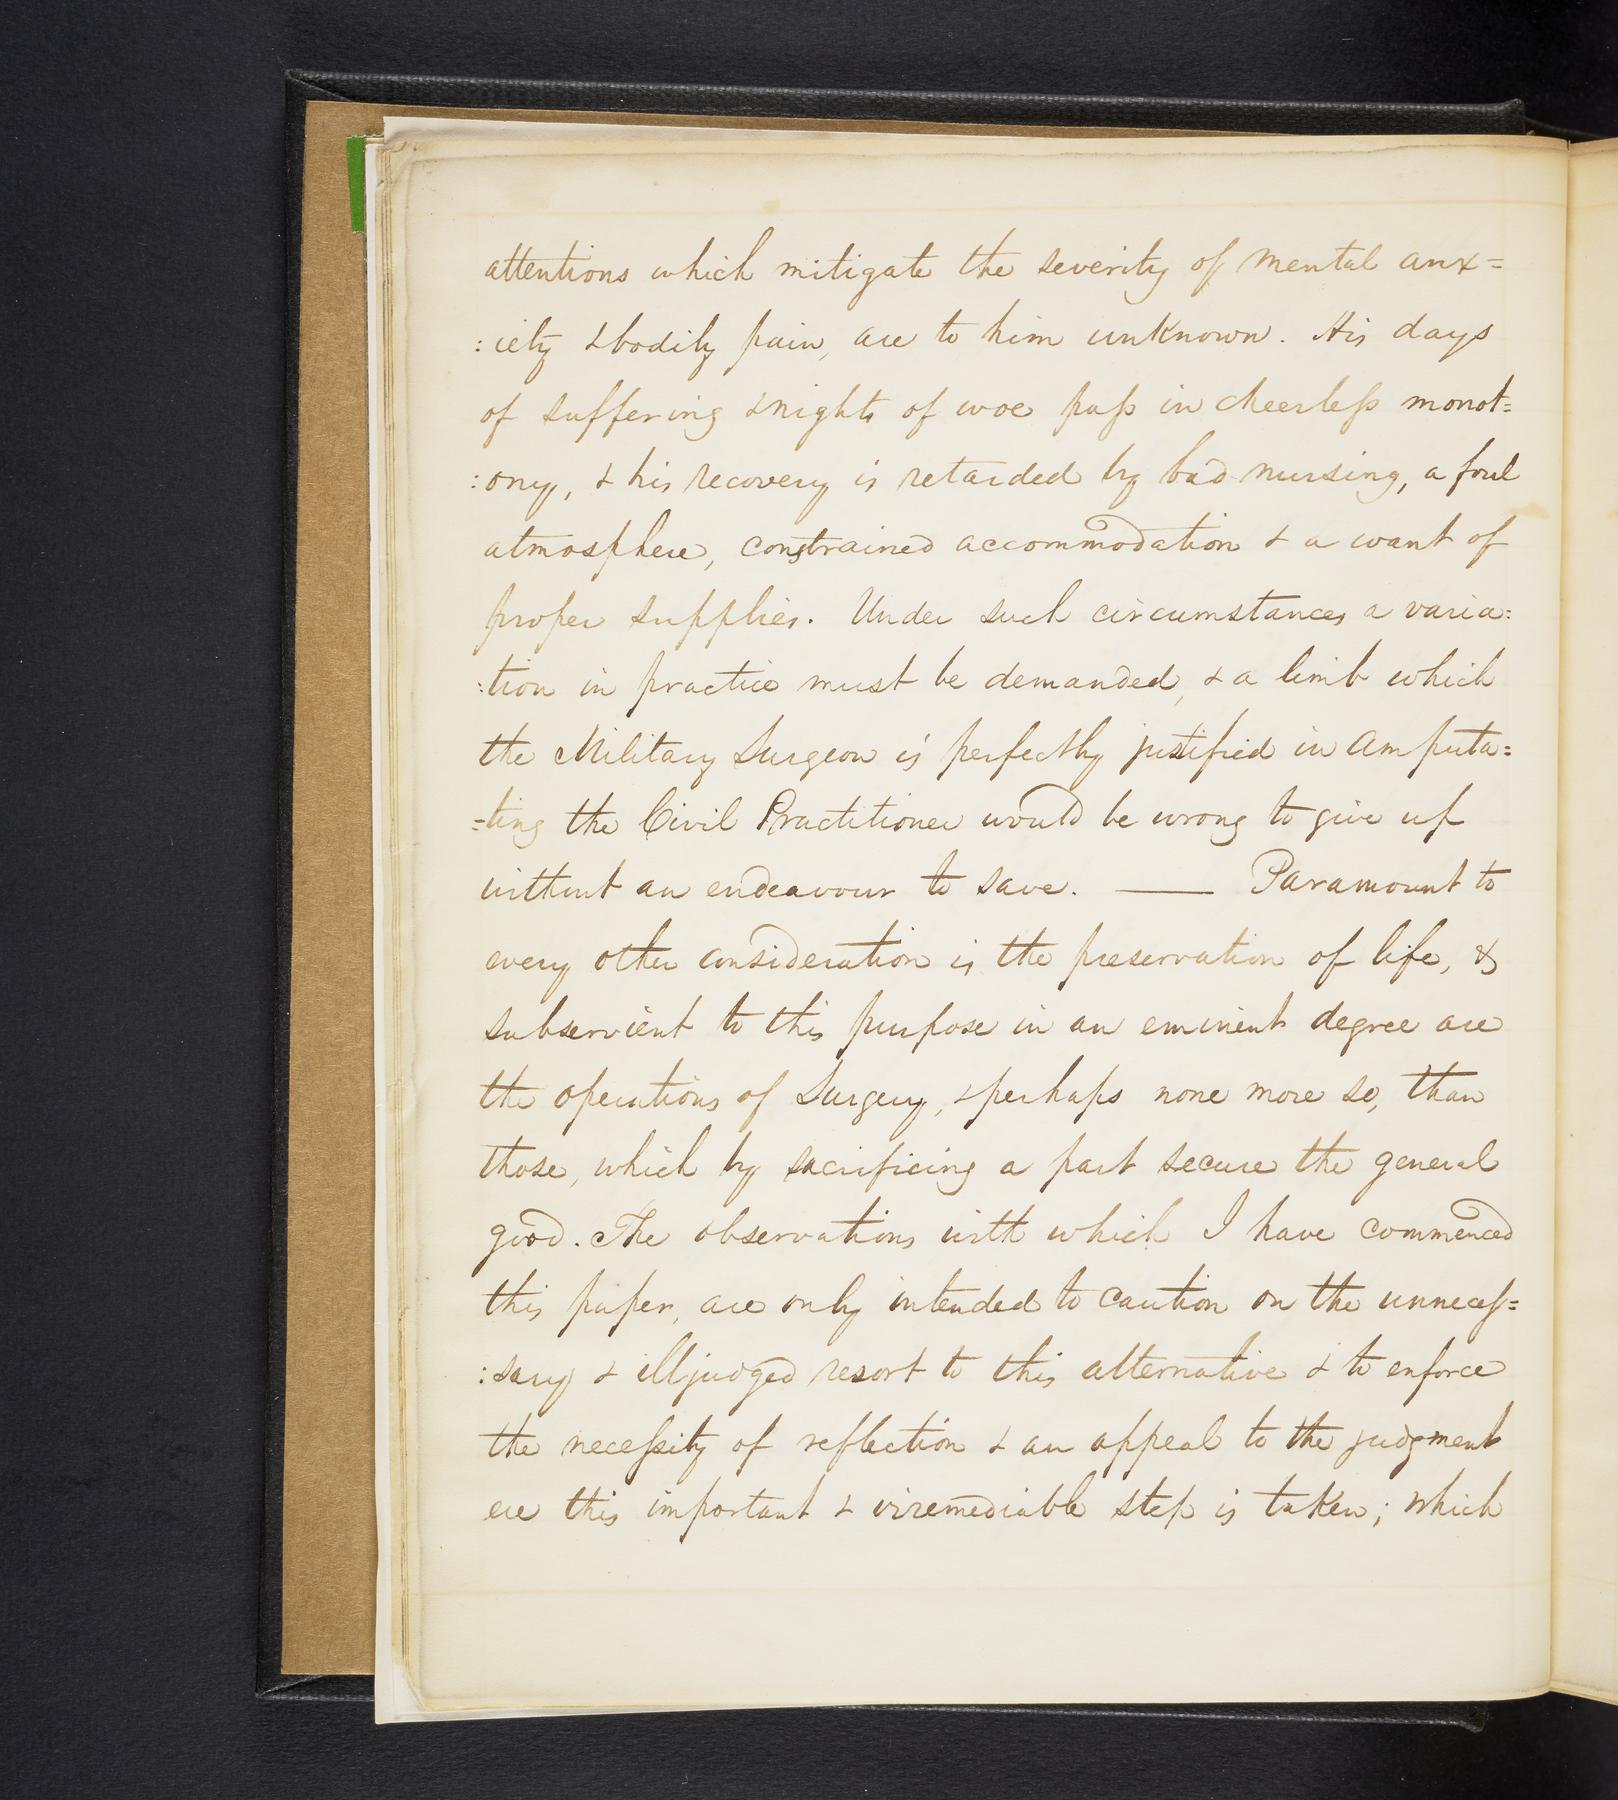 attentions which mitigate the severity of mental anx=
:iety & bodily pain, are to him unknown. His days
of suffering & nights of woe paſs in cheerleſs monot=
:ony, & his recovery is retarded by bad nursing, a foul
atmosphere, constrained accommodation & a want of
proper supplies. Under such circumstances a varia:
:tion in practice must be demanded, & a limb which
the Military Surgeon is perfectly justified in amputa=
=ting the Civil Practitioner would be wrong to give up
without an endeavour to save. —— Paramount to
every other consideration is the preservation of life, &
subservient to this purpose in an eminent degree are
the operations of Surgery, & perhaps none more so, than
those, which by sacrificing a part secure the general
good. The observations with which I have commenced
this paper, are only intended to caution on the unneceſ=
:sary & illjudged resort to this alternative & to enforce
the neceſsity of reflection & an appeal to the judgment
ere this important & irremediable step is taken; which